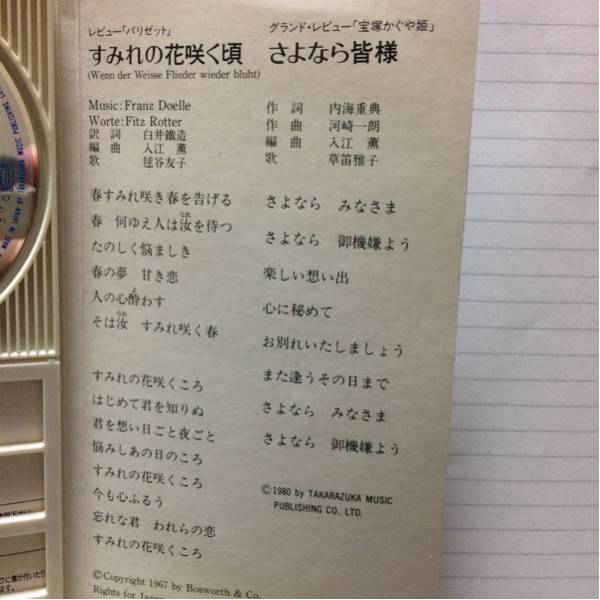 レビュー「パリゼット」
すみれの花咲く頃
(Wenn der Weisse Flieder wieder bluht)
Music: Franz Doelle
Worte: Fitz Rotter
訳 詞 白井鐵造
編 曲 入江 薫
歌 毬谷友子
春すみれ咲き春を告げる
春 何ゆえ人は汝を待つ
なれ
たのしく悩ましき
春の夢 甘き恋
人の心酔わす
よ
そは汝 すみれ咲く春
なれ
すみれの花咲くころ
はじめて君を知りぬ
君を想い日ごと夜ごと
悩みしあの日のころ
すみれの花咲くころ
今も心ふるう
忘れな君 われらの恋
すみれの花咲くころ
©Copyright 1967 by Bosworth & Co.
Rights for Japan
グランド・レビュー「宝塚かぐや姫」
さよなら皆様
作 詞 内海重典
作 曲 河崎一朗
編 曲 入江 薫
歌 草笛雅子
さよなら みなさま
さよなら 御機嫌よう
楽しい想い出
心に秘めて
お別れいたしましょう
また逢うその日まで
さよなら みなさま
さよなら 御機嫌よう
©1980 by TAKARAZUKA MUSIC
PUBLISHING CO., LTD.